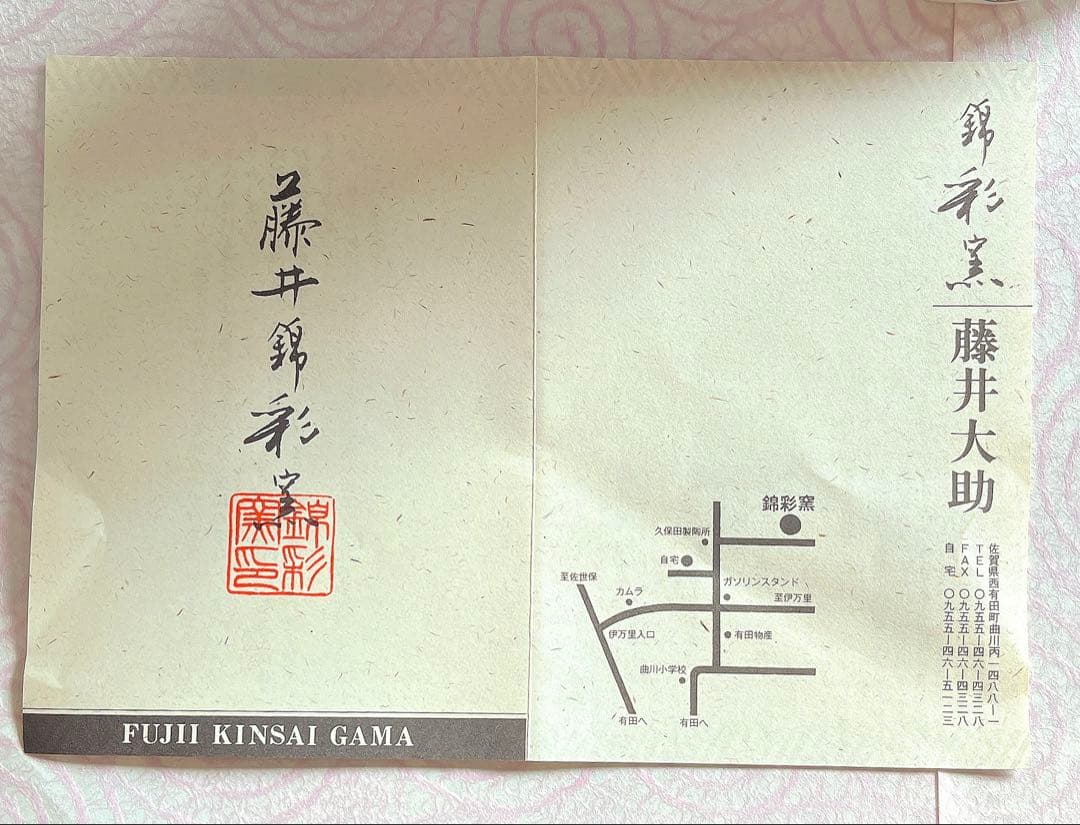 錦彩窯
藤井大助
佐賀県西有田町曲川丙一四八八ー一
TEL 〇九五五ー四六ー四三二八
FAX 〇九五五ー四六ー四三二八
自宅 〇九五五ー四六ー五一二三
錦彩窯
久保田製陶所
自宅
至佐世保
カムラ
ガソリンスタンド
至伊万里
伊万里入口
有田物産
曲川小学校
有田へ
有田へ
藤井錦彩窯
錦彩
窯印
FUJII KINSAI GAMA